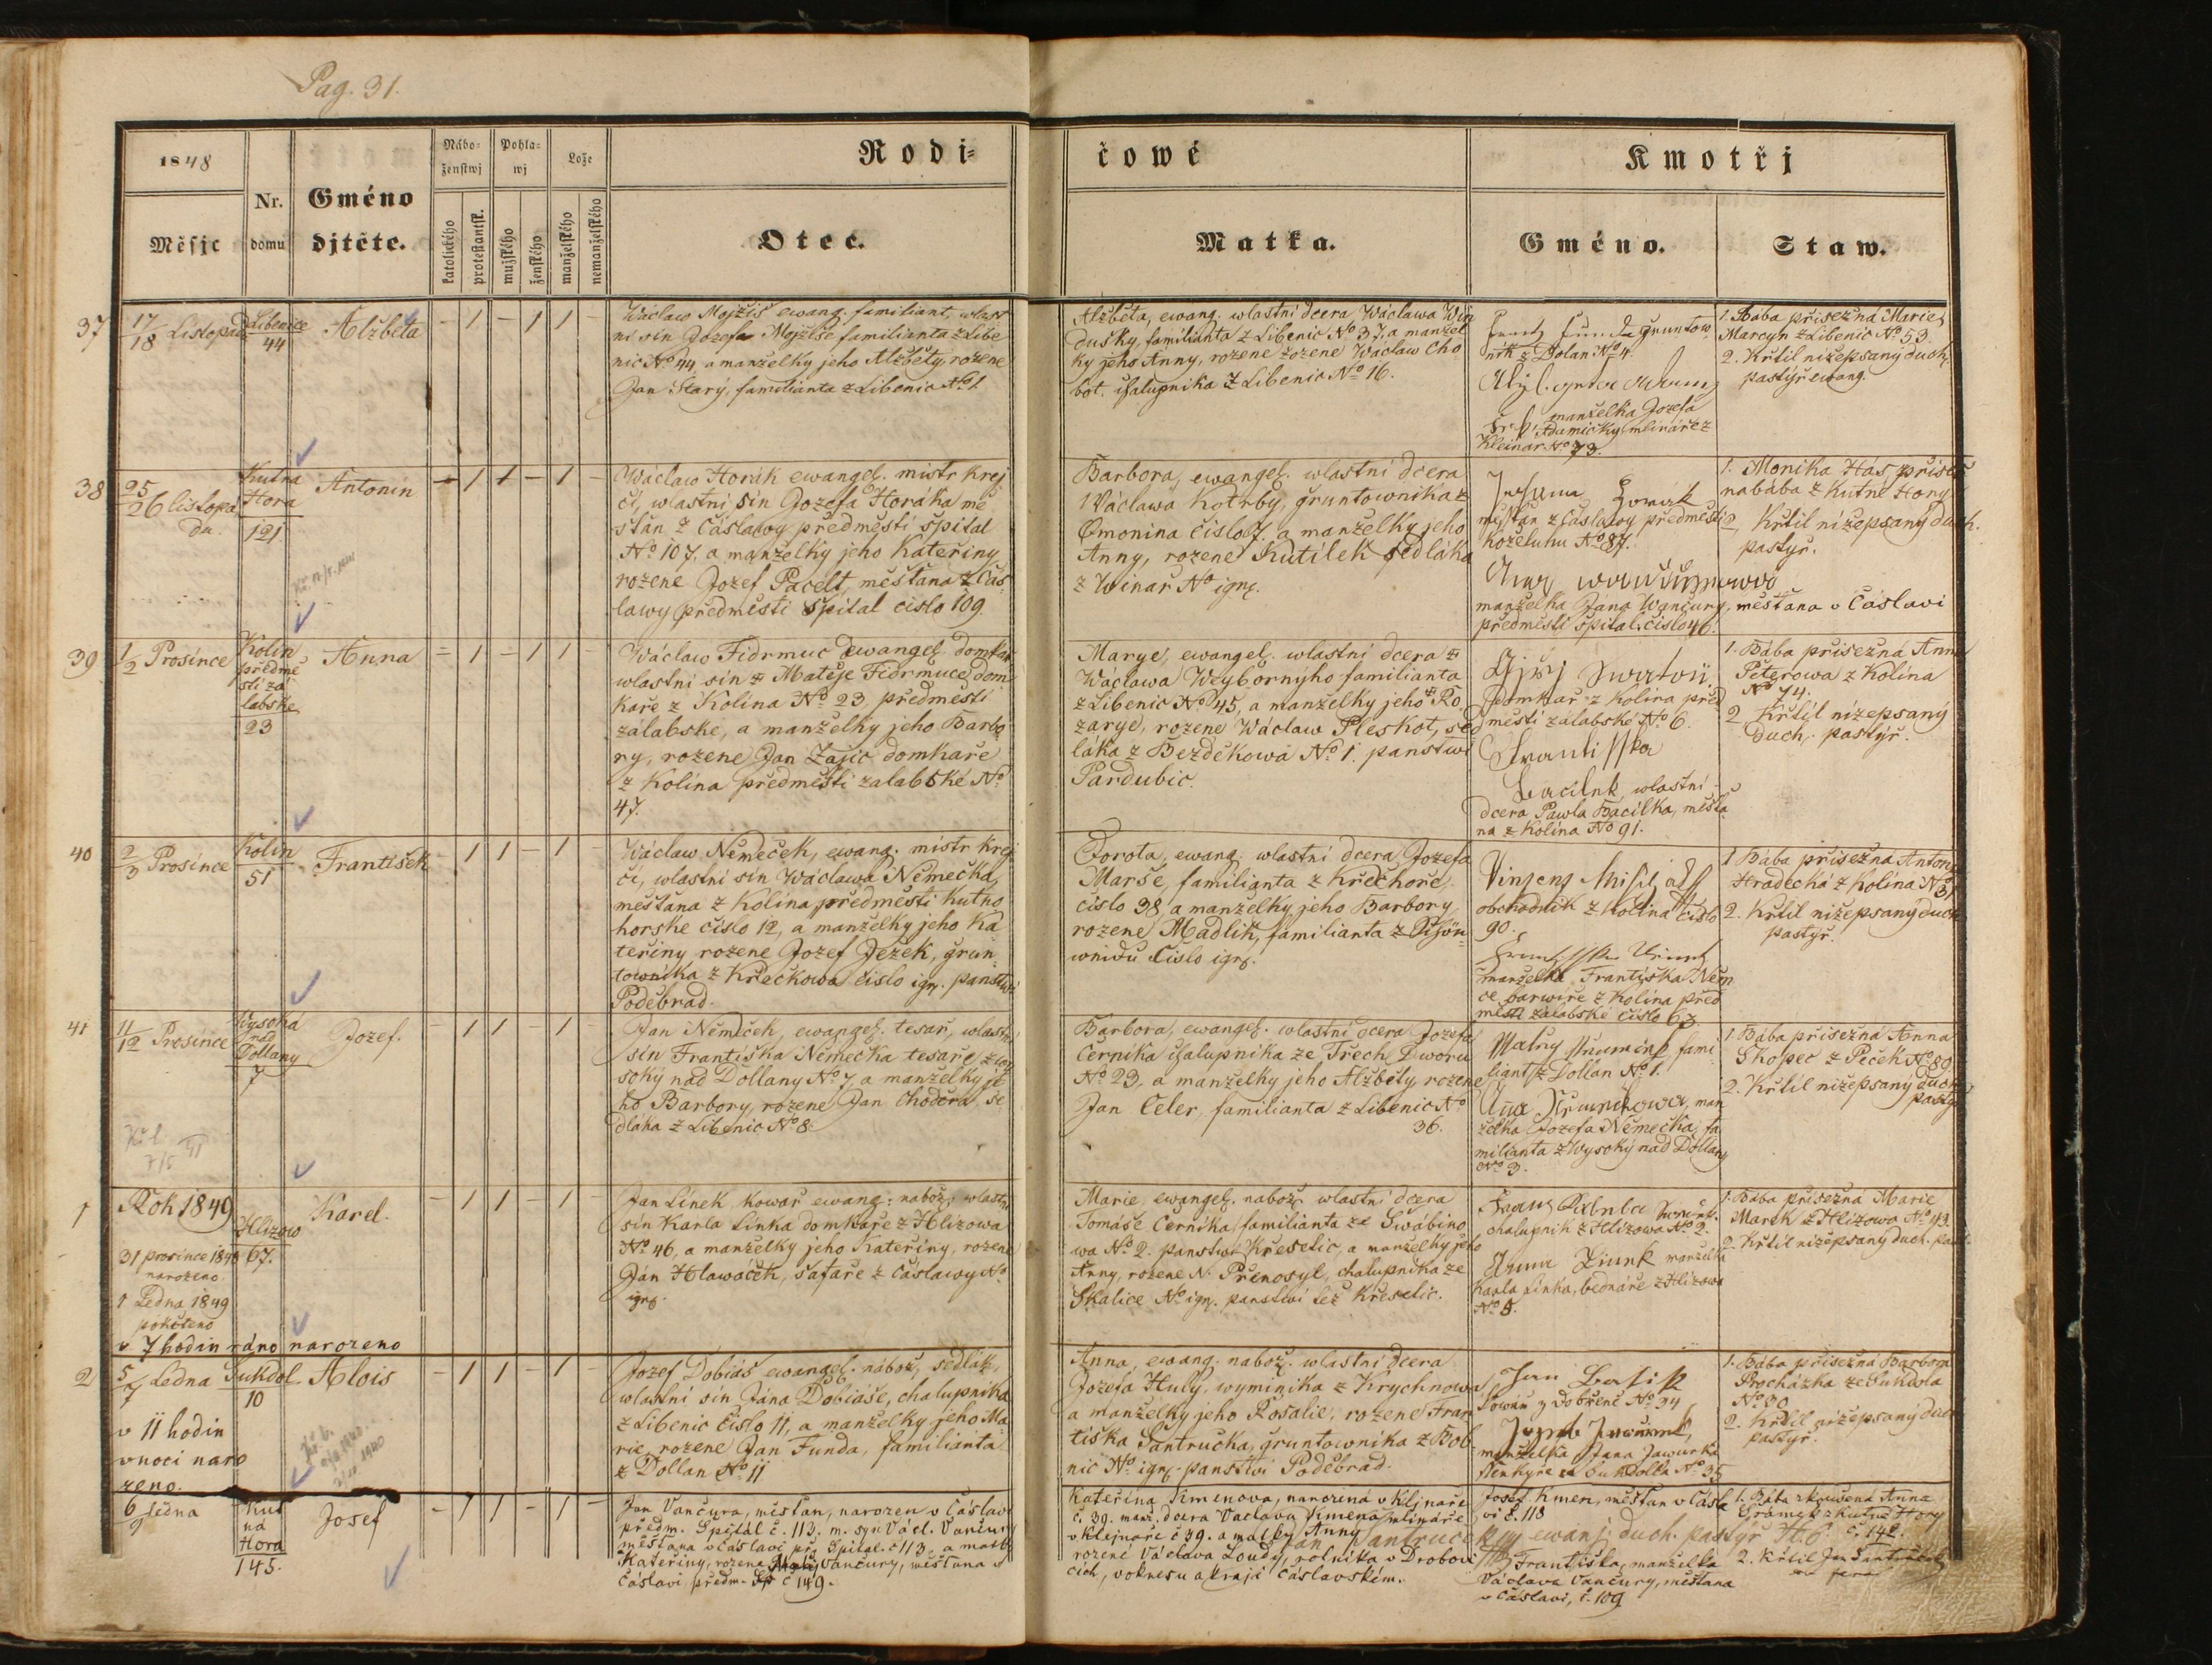 Pag. 31.
1848
Měsjc
Nr.
domu
Gméno
djtěte.
Nábo=
ženstwj
katolického
protestantsk.
Pohla=
wj
mužského
ženského
Lože
manželského
nemanželského
Rodi=
Otec.
čowé
Matka.
Kmotřj
Gméno.
Staw.
37
17/18 Listopad
Libenice
44
Alžběta
- 1 - 1 1 -
Wáclaw Mojžiš ewang. familiant, wlast
ni sin Jozefa Mojžiše familianta z Libe
nic No 44 a manželky jeho Alžběty, rozene
Jan Starý, familianta z Libenic No 1.
Alžběta, ewang. wlastni dcera Wáclawa Win
dušky, familianta z Libenic No 37. a manžel
ky jeho Anny, rozene Wáclaw Cho
bot. chalupnika z Libenic No 16.
gruntow
nik z Dolan No 4.
manželka Jozefa
Adamičky mlináře z
Kleinar No 73.
1. Baba přisežná Marie
Marcyn z Libenic No 53.
2. Křtil nižepsaný duch.
pastýř ewang.
38
25/26 listopa
du.
Kutna
Hora
121
Antonin
- 1 1 - 1 -
Wáclaw Horák ewangel. mistr krej
či, wlastní sin Jozefa Horáka mě
šťan z Čáslawy předměsti špital
No 107. a manželky jeho Kateřiny
rozene Jozef Pacelt, měšťana z Čás
lawy předměsti Špital cislo 109.
Barbora, ewangel. wlastní dcera
Wáclawa Kotrby, gruntownika z
Omonina čislo 7. a manželky jeho
Anny, rozene Kutilek sedláka
z Winař No ign.
měšťan z Čáslawy předměsti
koželuhu No 87.
manželka Jána Wančury, měšťana v Čáslavi
předměsti špital. čislo 46.
1. Monika Hás, přisež
na bába z Kutné Hory
2. Křtil nižepsaný duch.
pastyř.
39
1/2 Prosince
Kolin
předmě
sti zá
labske
23
Anna
- 1 - 1 1 -
Wáclaw Fidrmuc ewangel. domkař
wlastní sin Matěje Fidrmuce, dom
kaře z Kolina No 23 předměsti
zálabske, a manželky jeho Barbo
ry, rozene Jan Zajic domkaře
z Kolina předměsti zalabské No
47.
Marye, ewangel. wlastní dcera
Waclawa Weybornýho familianta
z Libenic No 45, a manželky jeho Ro
zarye, rozene Wáclaw Pleskot, sed
láka z Bezděkowa No 1. panstwi
Pardubic.
domkař z Kolina před
městi zálabské No 6.
Františka
Bacilek, wlastni
dcera Pawla Bacilka, měšťa
na z Kolina No 91.
1. Bába přisežná Anna
Peterowa z Kolina
No 74.
2. Křtil nižepsaný
duch. pastýř.
40
2/3 Prosince
Kolin
51
Frantisek
- 1 1 - 1 -
Wáclaw Němeček, ewang. mistr krej
či, wlastni sin Wáclawa Němečka,
měšťana z Kolina předměsti Kutno
horske čislo 12, a manželky jeho Ka
teřiny rozene Jozef Ježek, grun
townika z Křečkowa čislo ign. panstwi
Poděbrad.
Dorota, ewang. wlastní dcera Jozefa
Marše, familianta z Křečhoře,
cislo 38, a manželky jeho Barbory
rozene Madlik, familianta z
čislo ign.
obchodnik z Kolina čislo
90.
manželka Františka Něm
ce barwíře z Kolina před
městi zálabské čislo 63
1 Bába přisežná Anton.
Hradecká z Kolina No 31
2. Křtil nižepsaný duch
pastyř.
41
11/12 Prosince
Vysoká
nad
Dollany
7
Jozef.
- 1 1 1 -
Jan Němeček, ewangel. tesař, wlastni
sin Františka Němečka tesaře z wy
soký nad Dollany No 7, a manželky je
ho Barbory, rozene Jan Chodera se
dláka z Libenic No 8.
Barbora, ewangel. wlastní dcera Jozefa
Černika chalupnika ze Třech Dworu
No 23, a manželky jeho Alžběty, rozene
Jan Celer, familianta z Libenic No
36.
fami
liant z Dollan No 1.
man
želka Jozefa Němečka, fa
milianta z Wysoký nad Dollany
No 3.
1. Bába přisežna Anna
Skopec z Peček No 89.
2. Křtil nižepsaný duch
pastyř
1
Rok 1849
31 prosince 1848
narozeno
1 Ledna 1849
pokřteno
v 7 hodin ráno narozeno
Hlizow
67.
Karel.
- 1 1 - 1 -
Jan Linek, kowář ewang. nabož. wlastni
sin Karla Linka domkaře z Hlizowa
No 46, a manželky jeho Kateřiny, rozene
Ján Hlawáček, šafaře z Čáslawy No
ign.
Marie, ewangel. nabož. wlastní dcera
Tomáše Černika, familianta ze Swábino
wa No 2. panstwi Křesetic, a manželky jeho
Anny, rozene N. Přenosyl, chalupnika ze
Skalice No ign. panstwi též Křesetic.
chalupnik z Hlizowa No 2.
Anna Linek manželka
Karla Linka, bednáře z Hlizowa
No 8.
1. Bába přisežná Marie
Marek z Hlizowa No 49.
2. Křtil nižepsaný duch. past.
2
5/7 Ledna
v 11 hodin
v noci naro
zeno.
Sukdol
10
Alois
- 1 1 - 1 -
Jozef Dobiáš ewangel. nábož. sedlák,
wlastní sin Jána Dobiaše, chalupnika
z Libenic čislo 11, a manželky jeho Ma
rie, rozene Jan Funda, familianta
z Dollan No 11
Anna, ewang. nabož. wlastní dcera
Jozefa Huly, wyminika z Krychnowa
a manželky jeho Rosalie, rozene Fran
tiska Santrucka, gruntownika z Bob
nic No ign. panstwi Poděbrad.
Jan
z Dobřeně No 24
manželka Jana Jawurka
šenkýře ze Sukdolla No 35
1. Bába přisežná Barbora
Procházka ze Sukdola
No 30
2. Křtil nižepsaný duch
pastyř.
6/9 ledna
Kut
na
Hora
145.
Josef
- 1 1 - 1 -
Jan Vančura, měšťan, narozen v Čáslavi
předm. Špitál č. 113. m. syn Václ. Vančury
měšťana v Čáslavi př. Špital. č 113, a matky
Kateřiny, rozené Vančury, měšťana v
Čáslavi předm. č 149.
Kateřina Kmenova, narozená v Klejnaře
č. 39. manž. dcera Vaclava Kmena mlináře
v Klejnaře č 39. a matky Anny
rozené Václava Loudy, rolníka v Drobovi
cích, v okresu a kraji Čáslavském.
Jan Santruček ewanj. duch. pastýř H. C.
Josef Kmen, měšťan v Čásla
vi č. 118
Františka, manželka
Václava Vančury, měšťana
v Čáslavi, č. 109
1. Bába zkoušená Anna
Šrámek z Kutné Hory
č. 142.
2. Křtil Jan Šantruček